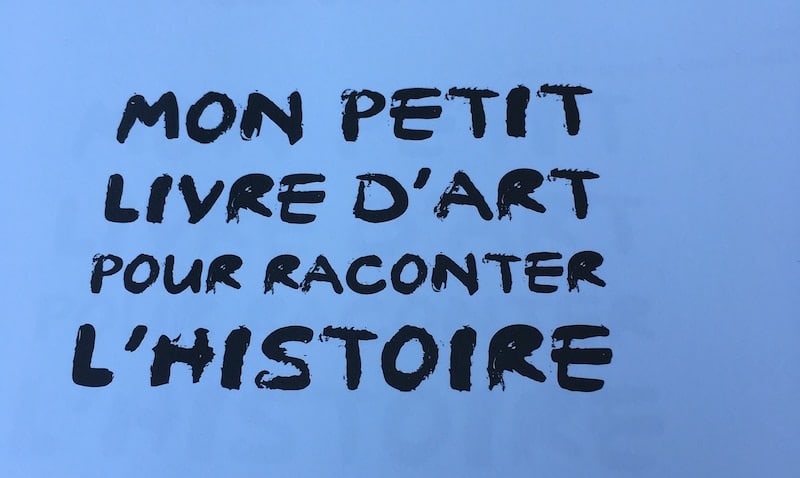 MON PETIT
LIVRE D'ART
POUR RACONTER
L'HISTOIRE